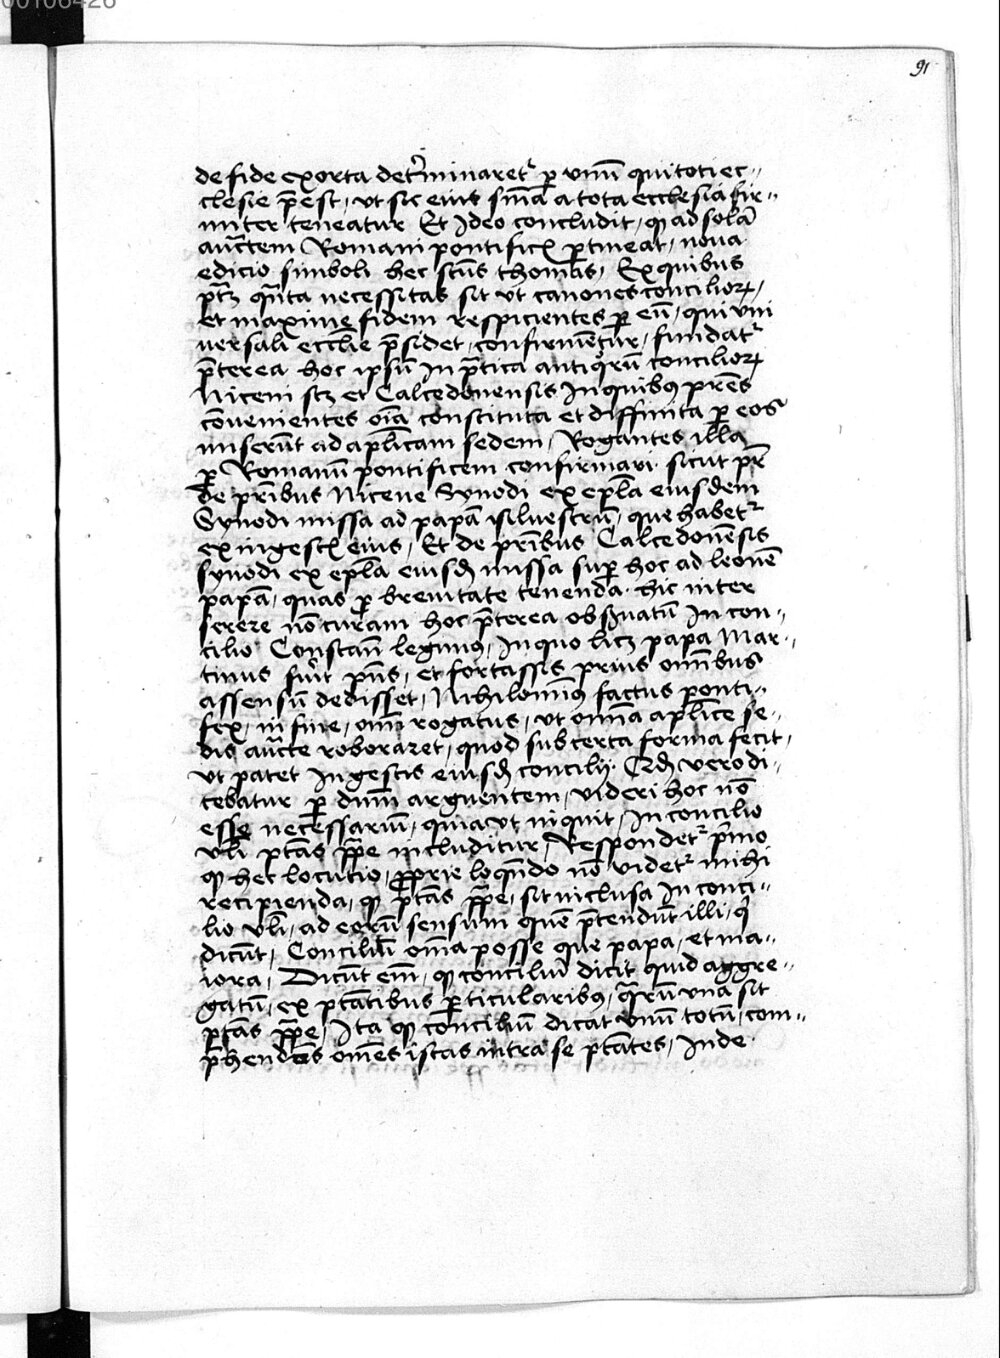 00106426
91
de fide exorta det'minaret᷑ p̱ vnū qui toti ec-
clesie p̄est, vt sic eius sn̄ia a tota ecclesia fir-
miter teneatur Et Ideo concludit, ꝙ ad solā
auctem Romani pontificꝭ p̱tineat, noua
edicio simboli hec sctūs thomas, Ex quibus
ptꝫ qn̄ta necessitas sit vt canones concilioꝝ,
et maxime fidem respicientes p̱ eū, qui vni
uersali eccl̄ie p̄sidet, confirmētur, fundat᷑
p̄terea hoc ipsū In p̄tica antiqͦrū concilioꝝ
Niceni scꝫ et Calcedonensis In quibꝯ pr̄es
cōuenientes oīa constituta et diffinita p̱ eos
miserūt ad apl̄icam sedem, Rogantes illa
p̱ Romanū pontificem confirmari. sicut pꝫ
de pr̄ibus Nicene Synodi ex epl̄a eiusdem
Synodi missa ad papā siluestrū, que habet᷑
ex in gestꝭ eius, Et de pr̄ibus Calcedonēsis
synodi ex epl̄a eiusdē missa sup̱ hoc ad leonē
papā, quas p̱ breuitate tenenda. hic inter
serere nō curam hoc p̄terea obẜuatū In con-
cilio Constan̄ legimꝯ, In quo licꝫ papa Mar-
tinus fuit pn̄s, et fortassis prius om̄ibus
assensū dedisset, Nihilomiꝯ factus ponti-
fex, in fine, om̄i rogatus, vt omn̄a apl̄ice se-
dis aucte roboraret, quod sub certa forma fecit,
vt patet In gestis eiusdē concilij. Qd̄ vero di-
cebatur p̱ dnm̄ arguentem, videri hoc nō
esse necessariū, quia vt inquit, In concilio
vl̄i ptās pp̄e includitur, Respondet᷑ p̄mo
ꝙ hec locutio, ꝓprie loqn̄do nō videt᷑ mihi
recipienda, ꝙ ptās pp̄e, sit inclusa In conci-
lio vl̄i, ad eorū sensum quē p̄tendūt illi, qͥ
dicūt, Conciliū om̄ia posse que papa, et ma-
iora, Dicūt em̄, ꝙ conciliū dicit quid aggre-
gatū, ex ptātibus p̱ticularibꝯ, qͣrū vna sit
ptās pp̄e, Ita ꝙ conciliū dicat vnū totū, com-
p̄hendēs omēs istas intra se ptātes, Inde